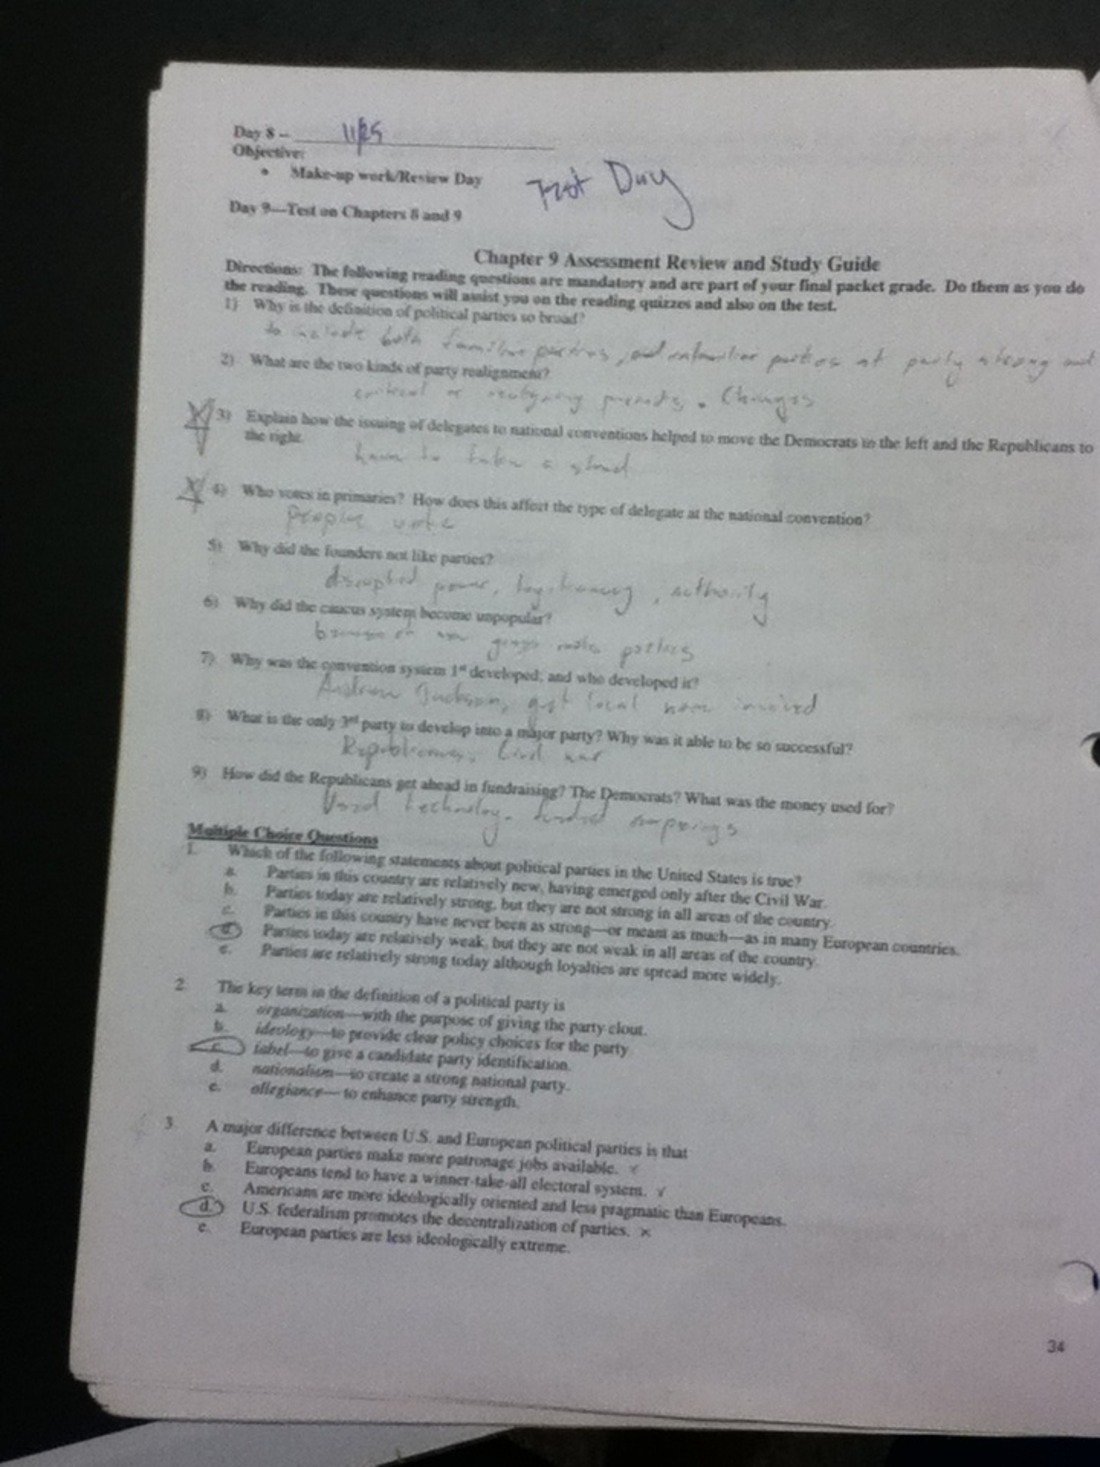 Day 8 -- 11/25
Objective:
• Make-up work/Review Day
Test Day
Day 9—Test on Chapters 8 and 9
Chapter 9 Assessment Review and Study Guide
Directions: The following reading questions are mandatory and are part of your final packet grade. Do them as you do
the reading. These questions will assist you on the reading quizzes and also on the test.
1) Why is the definition of political parties so broad?
to include both familiar parties, and unfamiliar parties at party strong and
2) What are the two kinds of party realignment?
critical or realigning periods. Changes
3) Explain how the issuing of delegates to national conventions helped to move the Democrats to the left and the Republicans to
the right.
have to take a stand
4) Who votes in primaries? How does this affect the type of delegate at the national convention?
People vote
5) Why did the founders not like parties?
disrupted power, legitimacy, authority
6) Why did the caucus system become unpopular?
because of parties
7) Why was the convention system 1st developed; and who developed it?
Andrew Jackson, get local more involved
8) What is the only 3rd party to develop into a major party? Why was it able to be so successful?
Republicans, Civil war
9) How did the Republicans get ahead in fundraising? The Democrats? What was the money used for?
Used technology.
Multiple Choice Questions
1. Which of the following statements about political parties in the United States is true?
a. Parties in this country are relatively new, having emerged only after the Civil War.
b. Parties today are relatively strong, but they are not strong in all areas of the country.
c. Parties in this country have never been as strong—or meant as much—as in many European countries.
d. Parties today are relatively weak, but they are not weak in all areas of the country.
e. Parties are relatively strong today although loyalties are spread more widely.
2. The key term in the definition of a political party is
a. organization—with the purpose of giving the party clout.
b. ideology—to provide clear policy choices for the party
c. label—to give a candidate party identification.
d. nationalism—to create a strong national party.
e. allegiance—to enhance party strength.
3. A major difference between U.S. and European political parties is that
a. European parties make more patronage jobs available.
b. Europeans tend to have a winner-take-all electoral system.
c. Americans are more ideologically oriented and less pragmatic than Europeans.
d. U.S. federalism promotes the decentralization of parties. x
e. European parties are less ideologically extreme.
34